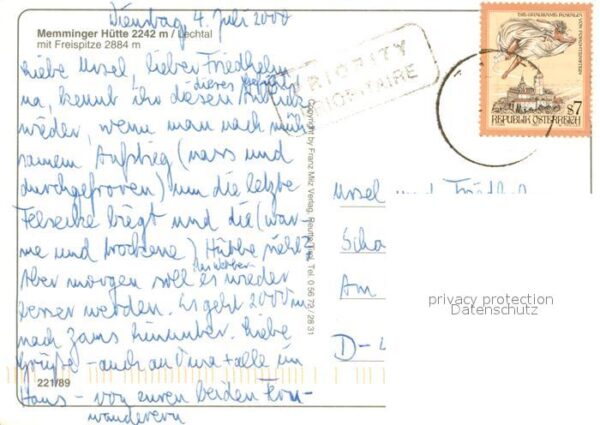 Dienstag 4. Juli 2000
Memminger Hütte 2242 m / Lechtal
mit Freispitze 2884 m
Liebe Ursel, lieber Friedhelm
na, kennt ihr dieses Gefühl diesen Anblick
wieder, wenn man nach müh-
samem Aufstieg (nass und
durchgefroren) um die letzte
Felsecke biegt und die (war-
me und trockene) Hütte sieht?
Aber morgen soll es wieder
besser werden. Es geht 2000 m
nach Zams hinunter. Liebe
Grüße - auch an Oma + alle im
Haus - von euren beiden Fern-
wanderern
221/89
Copyright by Franz Milz Verlag, Reutte/Tirol, Tel. 0 56 72 / 28 31
PRIORITY
PRIORITAIRE
S7
REPUBLIK ÖSTERREICH
Ursel und Friedhel
Scha
Am
D-
privacy protection
Datenschutz